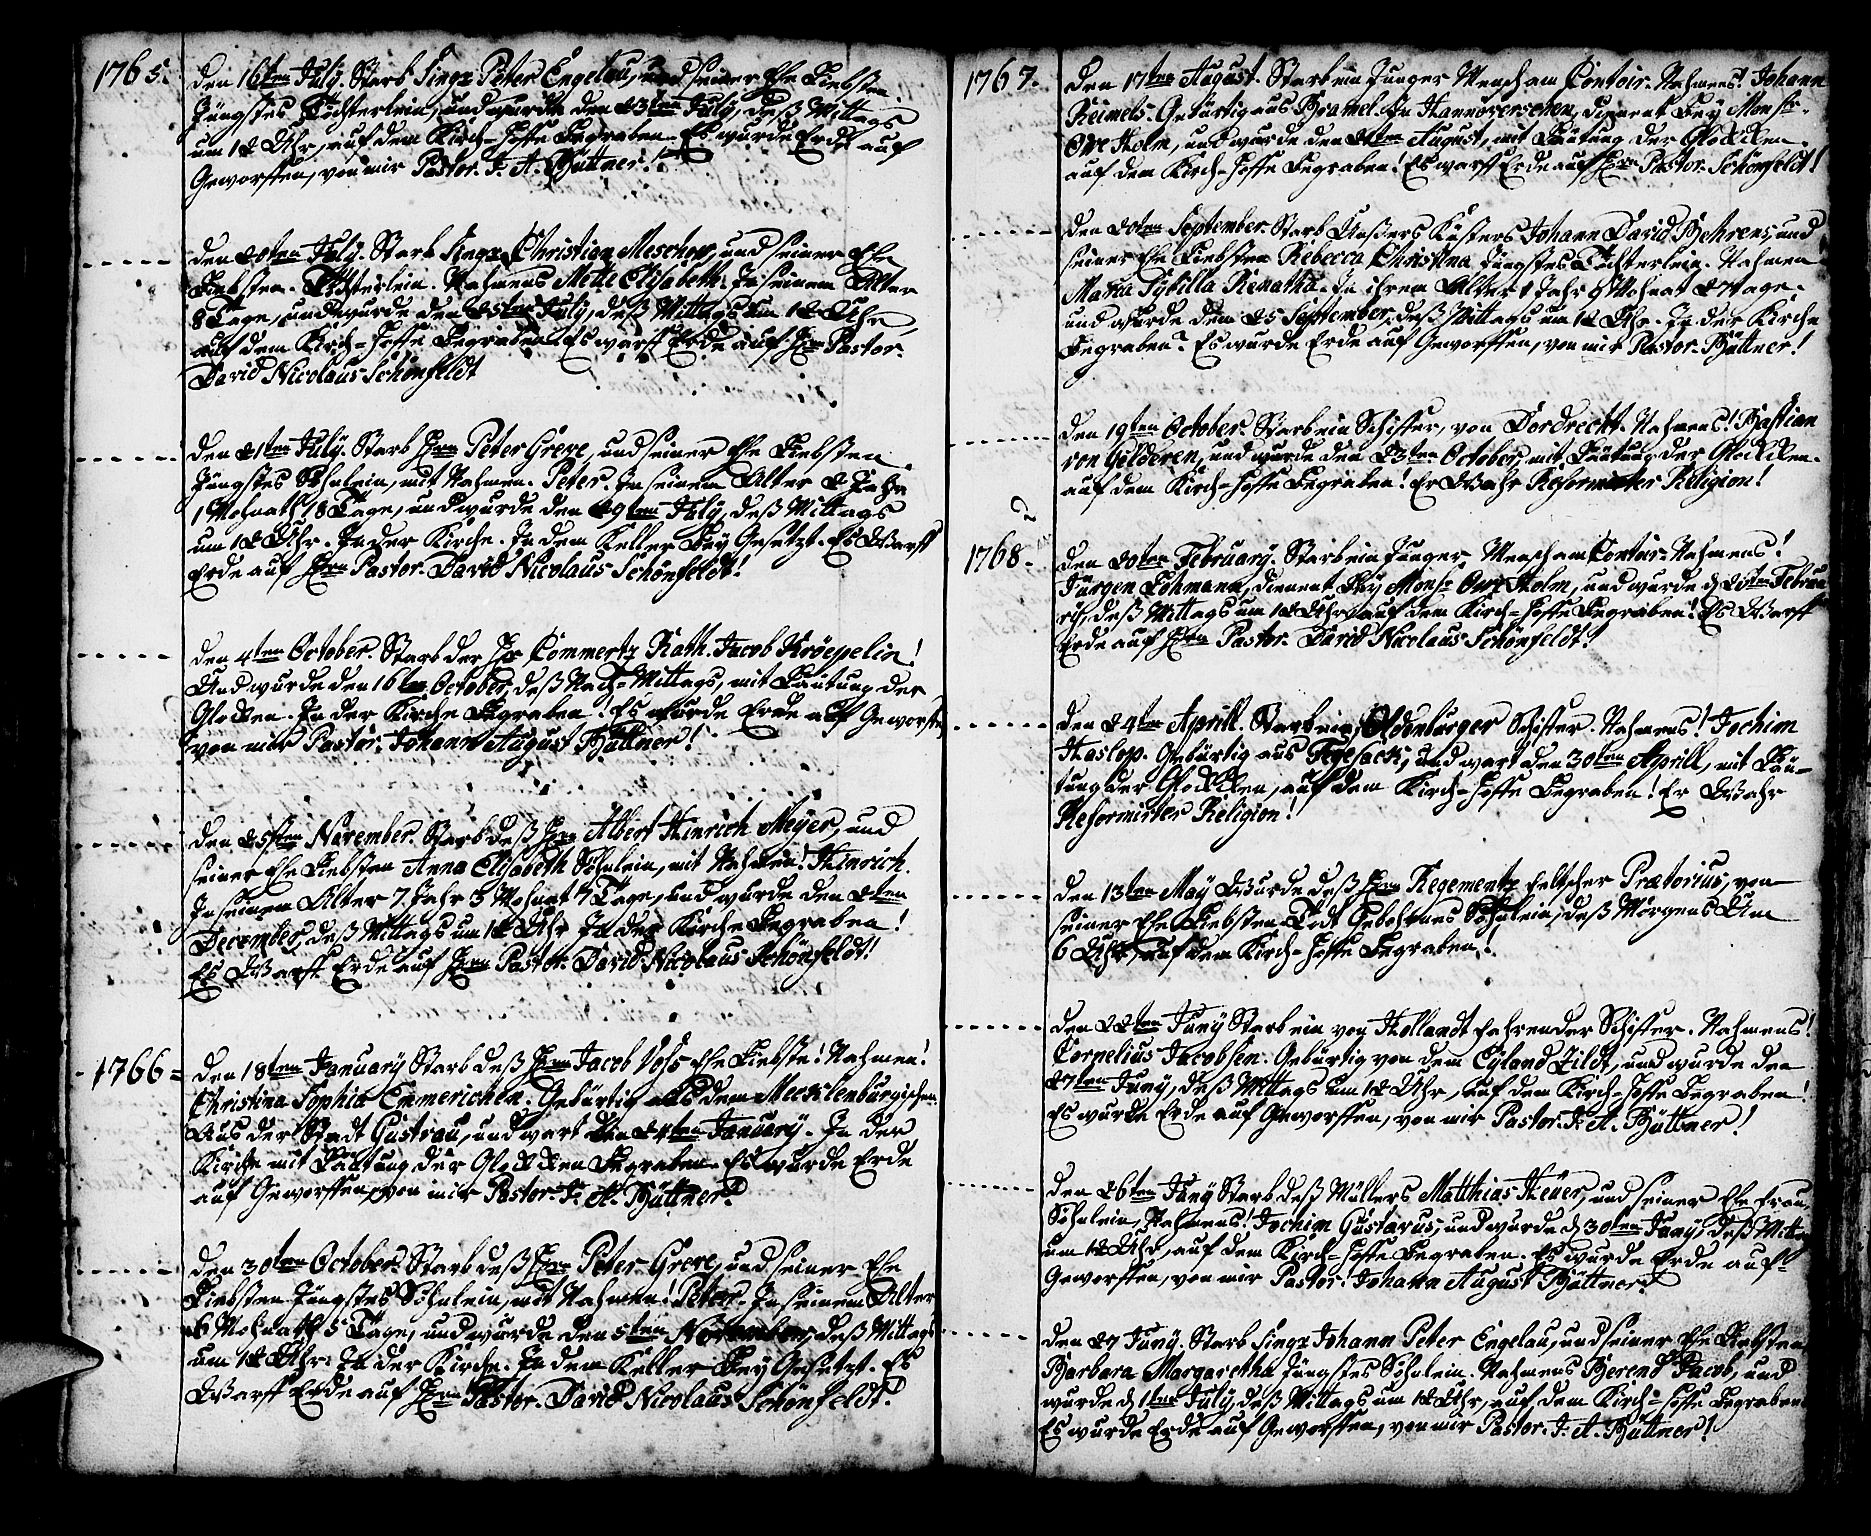 1765. Den 16ten July. Starb Singr Peter Engelau, und seiner Ehe Liebsten.
Jüngstes Töchterlein, und wurde den 23ten July, deß Mittags
um 12 Uhr, auf dem Kirch-Hoffe Begraben. Es wurde Erde auf
Geworffen, von mir Pastor. J. A. Büttner!
Den 20ten July. Starb Singr Christian Mescher, und seiner Ehe
Liebsten. Töchterlein. Nahmens Mette Elisabeth. In seinem Alter
8 Tage, und wurde den 25ten July, deß Mittags um 12 Uhr,
auf dem Kirch-Hoffe Begraben. Es warff Erde auf Hrn Pastor.
David Nicolaus Schönfeldt
Den 21ten July. Starb Hrn Peter Greve, und seiner Ehe Liebsten
Jüngstes Söhnlein, mit Nahmen. Peter. In seinem Alter 2 Jahr
1 Mohnath 18 Tage, und wurde den 29ten July, deß Mittags
um 12 Uhr. In der Kirche. In dem Keller Bey Gesetzt. Es Warff
Erde auf Hrn Pastor. David Nicolaus Schönfeldt!
Den 4ten October. Starb der Hr Commertz Rath. Jacob Kröepelin!
Und wurde den 16ten October, deß Nach-Mittags, mit Läutung der
Glocken. In der Kirche Begraben! Es wurde Erde auf Geworffen
von mir Pastor. Johann August Büttner!
Den 25sten November. Starb deß Hrn Albert Hinrich Meyer, und
seiner Ehe Liebsten Anna Elisabeth Söhnlein, mit Nahmen! Hinrich.
In seinem Alter 7. Jahr 3 Mohnat 7 Tage, und wurde den 2ten
December, deß Mittags um 12 Uhr In der Kirche Begraben!
Es Warff Erde auf Hrn Pastor. David Nicolaus Schönfeldt!
1766 = Den 18ten January Starb deß Hrn Jacob Voss Ehe Liebste! Nahmen!
Christina Sophia Emmerichen. Gebürtig aus dem Mecklenburgischen.
Aus der Stadt Gustrau, und wart den 24ten January. In der
Kirche mit Läutung der Glocken Begraben. Es wurde Erde
auf Geworffen, von mir Pastor J. A. Büttner!
Den 30ten October. Starb deß Hrn Peter Greve, und seiner Ehe
Liebsten Jüngstes Söhnlein, mit Nahmen! Peter. In seinem Alter
6 Mohnath 5 Tage, und wurde den 5ten November, deß Mittags
um 12 Uhr. In der Kirche. In dem Keller Bey Gesetzt. Es
Warff Erde auf Hrn Pastor. David Nicolaus Schönfeldt!
1767. Den 17ten August. Starb ein Junger Mensch am Contoir. Nahmens! Johann
Reimels. Gebürtig aus Bramel. In Hannoverschen, dienent Bey Monsr.
Ove Holm, und wurde den 21ten August, mit Läutung der Glocken.
auf dem Kirch-Hoffe Begraben! Es warff Erde auf Hrn Pastor. Schönfeldt!
Den 20ten September. Starb Unßers Küsters Johann David Behrens, und
seiner Ehe Liebsten Rebecca Christina Jüngstes Töchterlein. Nahmen
Maria Sybilla Renatha. In ihrem Alter 1 Jahr 9 Mohnat 27 Tage.
und wurde den 25 September, deß Mittags um 12 Uhr. In der Kirche
Begraben? Es wurde Erde auf Geworffen, von mir Pastor. Büttner!
Den 19ten October. Starb ein Schiffer, von Dordrecht. Nahmens! Bastian
von Gilderen, und wurde den 23ten October mit Läutung der Glocken.
auf dem Kirch-Hoffe Begraben! Er Wahr Reformirter Religion!
1768. Den 20ten February. Starb ein Junger Mensch am Contoir. Nahmens!
Jürgen Lohmann, dienent Bey Monsr Ove Holm, und wurde d 25ten Februa
ry, deß Mittags um 12 Uhr auf dem Kirch-Hoffe Begraben! Es Warff
Erde auf Hrn Pastor. David Nicolaus Schönfeldt!
Den 24ten Aprill. Starb ein Oldenburger Schiffer. Nahmens! Jochim
Haslop. Gebürtig aus Fegesack, und wart den 30ten Aprill, mit Läu-
tung der Glocken, auf dem Kirch-Hoffe Begraben! Er Wahr
Reformirter Religion!
Den 13ten May Wurde deß Hrn Regementz feltscher Prætorius, von
seiner Ehe Liebsten Todt Gebohrnes Söhnlein, deß Morgens Um
6 Uhr, auf dem Kirch-Hoffe Begraben.
Den 22ten Juny Starb ein von Hollandt fahrender Schiffer. Nahmens!
Cornelius Jacobsen. Gebürtig von dem Eyland Zildt, und wurde den
27ten Juny, deß Mittags um 12 Uhr, auf dem Kirch-Hoffe Begraben!
Es wurde Erde auf Geworffen, von mir Pastor. J. A. Büttner!
Den 26ten Juny Starb deß Müllers Matthias Heüer, und seiner Ehe Frau,
Söhnlein, Nahmens! Jochim Gustavus, und wurde d 30ten Juny, deß Mittag
um 12 Uhr, auf dem Kirch-Hoffe Begraben. Es wurde Erde auf-
Geworffen, von mir Pastor. Johann August Büttner!
Den 27 Juny. Starb Singr Johann Peter Engelau, und seiner Ehe Liebsten
Barbara Margaretha Jüngstes Söhnlein. Nahmens Berend Jacob, und
wurde d 1ten July, deß Mittags um 12 Uhr, auf dem Kirch-Hoffe Begraben
Es wurde Erde auf Geworffen, von mir Pastor. J. A. Büttner!